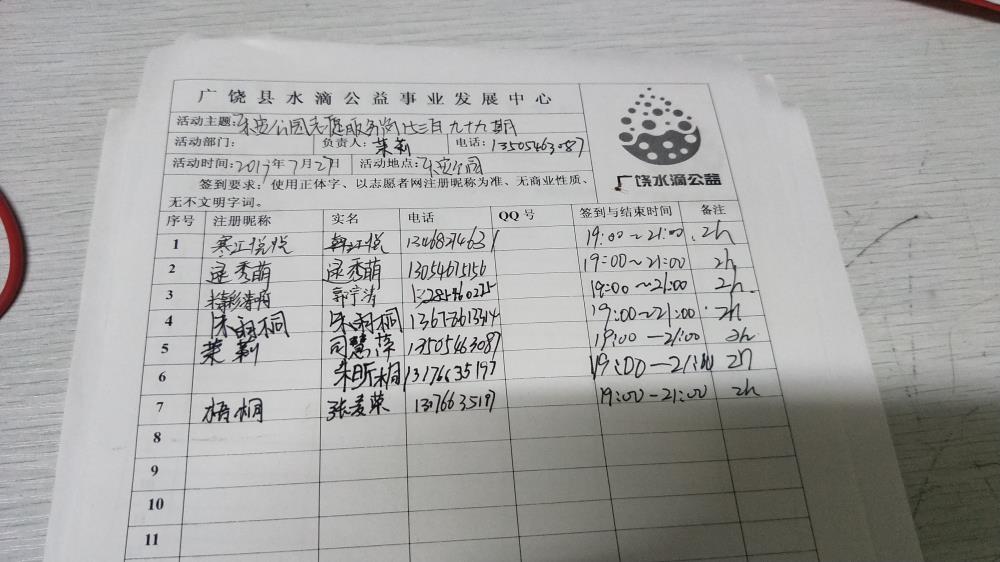 广饶县水滴公益事业发展中心
活动主题: 公园志愿服务岗 九十九期
活动部门: 负责人: 茉莉 电话: 13505463087
活动时间: 2019年7月27日 活动地点: 公园
签到要求: 使用正体字、以志愿者网注册昵称为准、无商业性质、
无不文明字词。
广饶水滴公益
序号 注册昵称 实名 电话 QQ号 签到与结束时间 备注
1 寒江悦悦 韩江悦 13468274631 19:00~21:00 2h
2 逯秀萌 逯秀萌 13054675156 19:00~21:00 2h
3 19:00~21:00 2h
4 朱羽桐 朱羽桐 19:00~21:00 2h
5 茉莉 司慧萍 13505463087 19:00-21:00 2h
6 朱昕桐 13176635197 19:00-21:00 2h
7 梧桐 张爱荣 19:00-21:00 2h
8
9
10
11